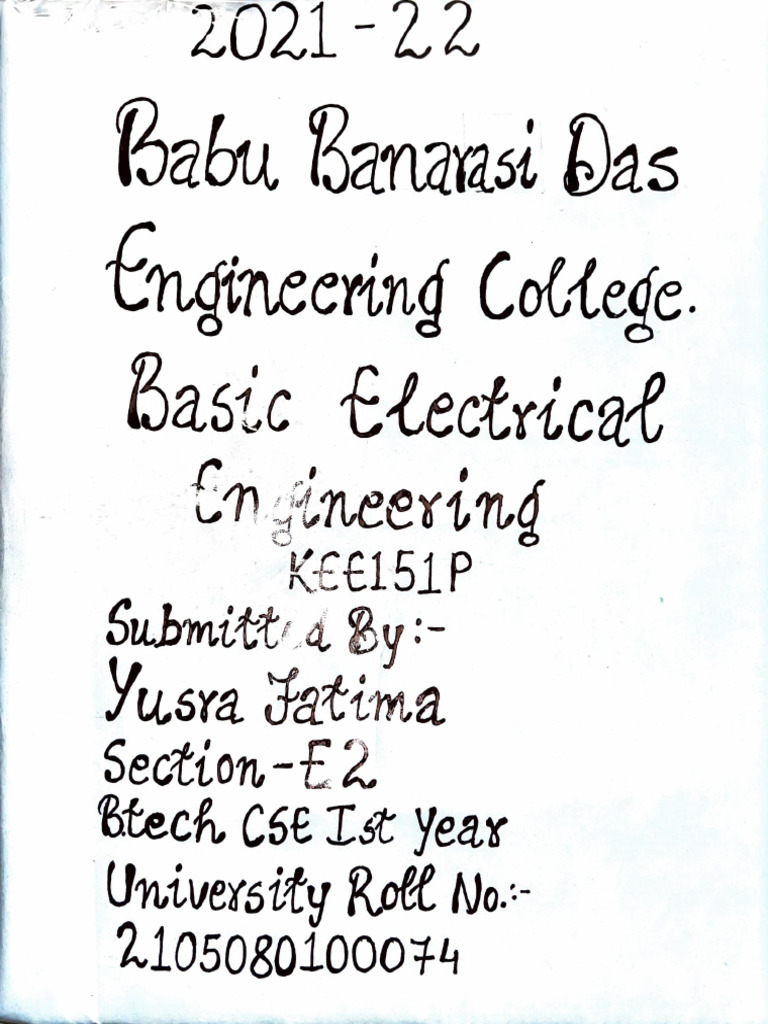 2021-22
Babu Banarasi Das
Engineering College.
Basic Electrical
Engineering
KEE151P
Submitted By:-
Yusra Fatima
Section-E2
B.tech CSE Ist Year
University Roll No.:-
2105080100074